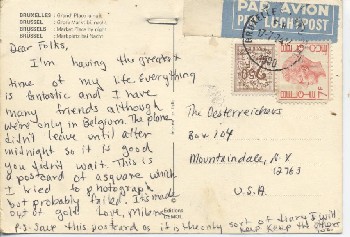 BRUXELLES : Grand Place
BRUSSEL : Grote Markt
BRUSSELS : Market Place by night
BRÜSSEL : Marktplatz bei Nacht
PAR AVION
PER LUCHTPOST
Dear Folks,
I'm having the greatest
time of my life. Everything
is fantastic and I have
many friends although
we're only in Belgium. The plane
didn't leave until after
midnight so it is good
you didn't wait. This is
a postcard of a square which
I tried to photograph
but probably failed. It's made
out of gold. Love,
P.S. Save this postcard as it is the only sort of diary I will
keep. Keep the others
The Oesterreichers
Box 104
Mountaindale, N.Y.
12763
U.S.A.